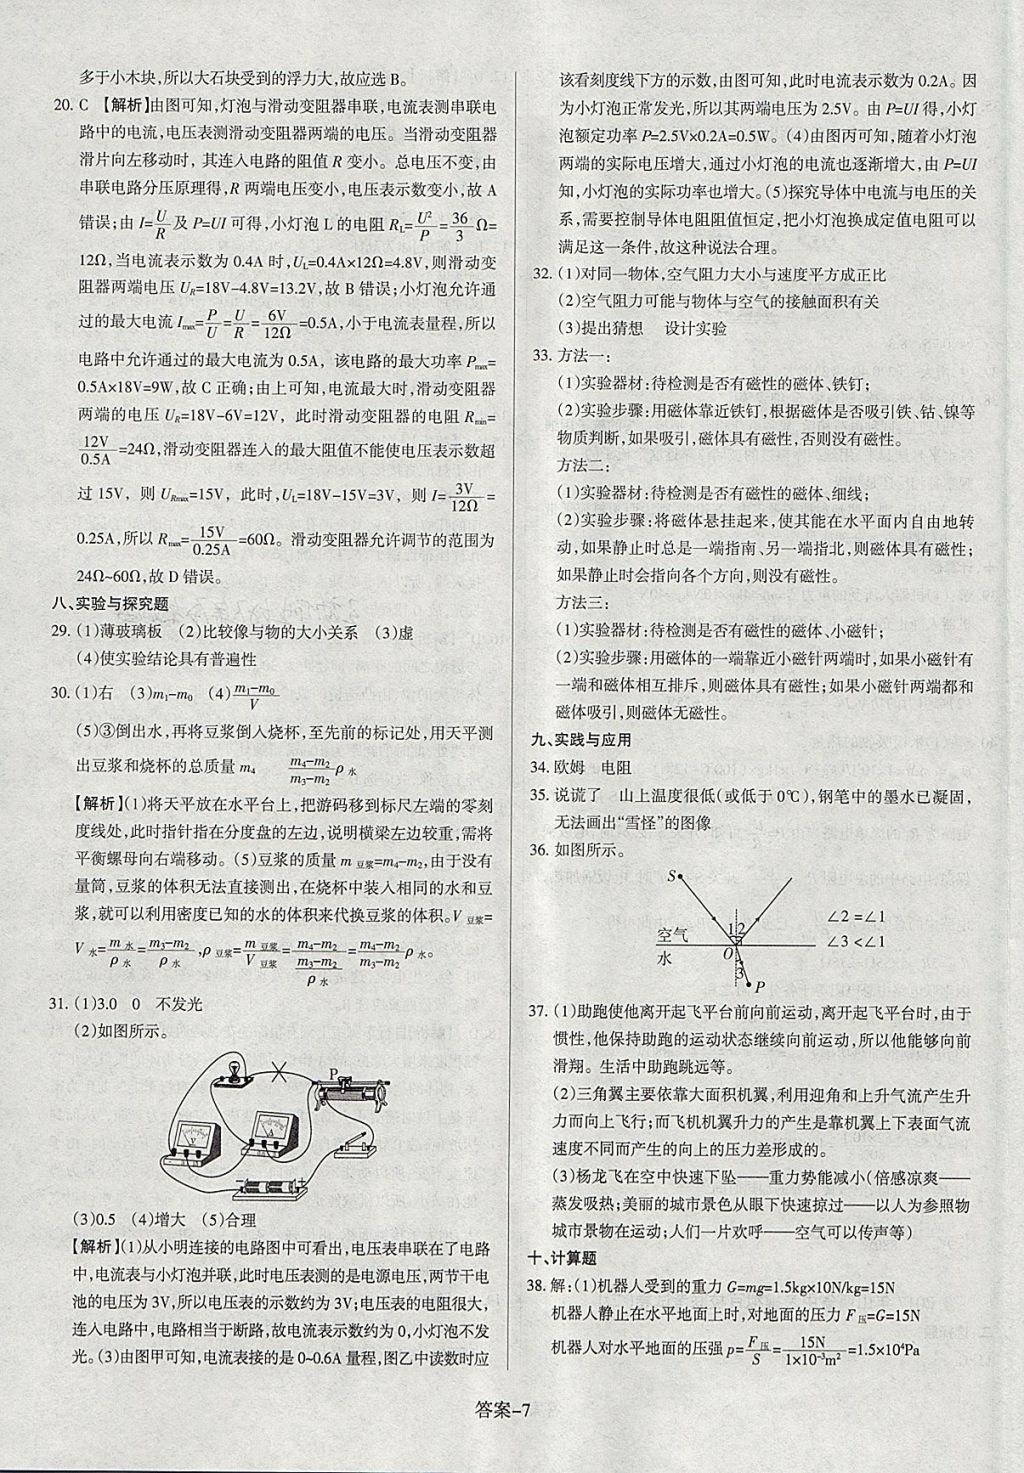 多于小木块,所以大石块受到的浮力大,故应选 B。
20. C 【解析】由图可知,灯泡与滑动变阻器串联,电流表测串联电
路中的电流,电压表测滑动变阻器两端的电压。当滑动变阻器
滑片向左移动时，其连入电路的阻值 R 变小。总电压不变,由
串联电路分压原理得,R 两端电压变小,电压表示数变小,故 A
错误;由 I=U/R 及 P=UI 可得,小灯泡 L 的电阻 RL=U²/P=36/3 Ω=
12Ω,当电流表示数为 0.4A 时,UL=0.4A×12Ω=4.8V,则滑动变
阻器两端电压 UR=18V-4.8V=13.2V,故 B 错误;小灯泡允许通
过的最大电流 Imax=P/U=U/R=6V/12Ω=0.5A,小于电流表量程,所以
电路中允许通过的最大电流为 0.5A，该电路的最大功率 Pmax=
0.5A×18V=9W,故 C 正确;由上可知,电流最大时,滑动变阻器
两端的电压 UR=18V-6V=12V，此时滑动变阻器的电阻 Rmin=
12V/0.5A=24Ω,滑动变阻器连入的最大阻值不能使电压表示数超
过 15V，则 URmax=15V，此时,UL=18V-15V=3V，则 I=3V/12Ω=
0.25A,所以 Rmax=15V/0.25A=60Ω。滑动变阻器允许调节的范围为
24Ω~60Ω,故 D 错误。
八、实验与探究题
29. (1)薄玻璃板 (2)比较像与物的大小关系 (3)虚
(4)使实验结论具有普遍性
30. (1)右 (3)m₁-m₀ (4)(m₁-m₀)/V
(5)③倒出水,再将豆浆倒人烧杯,至先前的标记处,用天平测
出豆浆和烧杯的总质量 m₄ (m₄-m₂)/(m₃-m₂) ρ水
【解析】(1)将天平放在水平台上,把游码移到标尺左端的零刻
度线处,此时指针指在分度盘的左边,说明横梁左边较重,需将
平衡螺母向右端移动。(5)豆浆的质量 m豆浆=m₄-m₂,由于没有
量筒,豆浆的体积无法直接测出,在烧杯中装入相同的水和豆
浆,就可以利用密度已知的水的体积来代换豆浆的体积。V豆浆=
V水=m水/ρ水=(m₃-m₂)/ρ水,ρ豆浆=m豆浆/V豆浆=(m₄-m₂)/((m₃-m₂)/ρ水)=(m₄-m₂)/(m₃-m₂) ρ水。
31. (1)3.0 0 不发光
(2)如图所示。
P
V
A
(3)0.5 (4)增大 (5)合理
【解析】(1)从小明连接的电路图中可看出,电压表串联在了电路
中,电流表与小灯泡并联,此时电压表测的是电源电压,两节干电
池的电压为 3V,所以电压表的示数约为 3V;电压表的电阻很大,
连入电路中,电路相当于断路,故电流表示数约为 0,小灯泡不发
光。(3)由图甲可知,电流表接的是 0~0.6A 量程,图乙中读数时应
该看刻度线下方的示数,由图可知,此时电流表示数为 0.2A。因
为小灯泡正常发光,所以其两端电压为 2.5V。由 P=UI 得,小灯
泡额定功率 P=2.5V×0.2A=0.5W。(4)由图丙可知,随着小灯泡
两端的实际电压增大,通过小灯泡的电流也逐渐增大,由 P=UI
知,小灯泡的实际功率也增大。(5)探究导体中电流与电压的关
系,需要控制导体电阻阻值恒定,把小灯泡换成定值电阻可以
满足这一条件,故这种说法合理。
32. (1)对同一物体,空气阻力大小与速度平方成正比
(2)空气阻力可能与物体与空气的接触面积有关
(3)提出猜想 设计实验
33. 方法一：
(1)实验器材:待检测是否有磁性的磁体、铁钉;
(2)实验步骤:用磁体靠近铁钉,根据磁体是否吸引铁、钴、镍等
物质判断,如果吸引,磁体具有磁性,否则没有磁性。
方法二：
(1)实验器材:待检测是否有磁性的磁体、细线;
(2)实验步骤:将磁体悬挂起来,使其能在水平面内自由地转
动,如果静止时总是一端指南、另一端指北,则磁体具有磁性;
如果静止时会指向各个方向,则没有磁性。
方法三：
(1)实验器材:待检测是否有磁性的磁体、小磁针;
(2)实验步骤:用磁体的一端靠近小磁针两端时,如果小磁针有
一端和磁体相互排斥,则磁体具有磁性;如果小磁针两端都和
磁体吸引,则磁体无磁性。
九、实践与应用
34. 欧姆 电阻
35. 说谎了 山上温度很低(或低于 0℃),钢笔中的墨水已凝固,
无法画出“雪怪”的图像
36. 如图所示。
S
空气
水
1 2
O
3
P
∠2=∠1
∠3<∠1
37. (1)助跑使他离开起飞平台前向前运动,离开起飞平台时,由于
惯性,他保持助跑的运动状态继续向前运动,所以他能够向前
滑翔。生活中助跑跳远等。
(2)三角翼主要依靠大面积机翼,利用迎角和上升气流产生升
力而向上飞行;而飞机机翼升力的产生是靠机翼上下表面气流
速度不同而产生的向上的压力差形成的。
(3)杨龙飞在空中快速下坠——重力势能减小(倍感凉爽——
蒸发吸热;美丽的城市景色从眼下快速掠过——以人为参照物
城市景物在运动;人们一片欢呼——空气可以传声等)
十、计算题
38. 解:(1)机器人受到的重力 G=mg=1.5kg×10N/kg=15N
机器人静止在水平地面上时,对地面的压力 F压=G=15N
机器人对水平地面的压强 p=F压/S=15N/(1×10⁻³m²)=1.5×10⁴Pa
答案-7